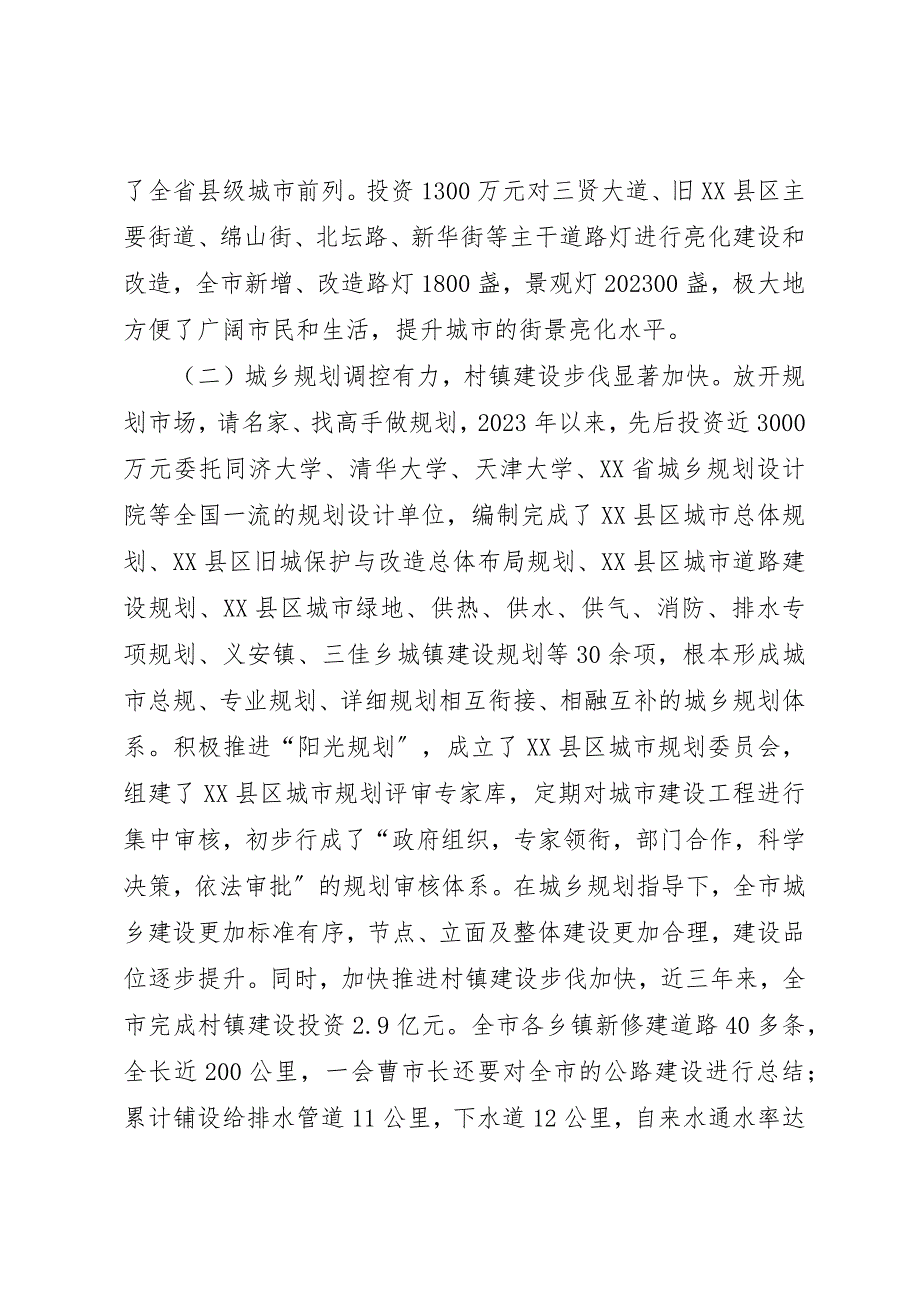 了全省县级城市前列。投资 1300 万元对三贤大道、旧 XX 县区主
要街道、绵山街、北坛路、新华街等主干道路灯进行亮化建设和
改造，全市新增、改造路灯 1800 盏，景观灯 202300 盏，极大地
方便了广阔市民和生活，提升城市的街景亮化水平。
（二）城乡规划调控有力，村镇建设步伐显著加快。放开规
划市场，请名家、找高手做规划，2023 年以来，先后投资近 3000
万元委托同济大学、清华大学、天津大学、XX 省城乡规划设计
院等全国一流的规划设计单位，编制完成了 XX 县区城市总体规
划、XX 县区旧城保护与改造总体布局规划、XX 县区城市道路建
设规划、XX 县区城市绿地、供热、供水、供气、消防、排水专
项规划、义安镇、三佳乡城镇建设规划等 30 余项，根本形成城
市总规、专业规划、详细规划相互衔接、相融互补的城乡规划体
系。积极推进“阳光规划〞，成立了 XX 县区城市规划委员会，
组建了 XX 县区城市规划评审专家库，定期对城市建设工程进行
集中审核，初步行成了“政府组织，专家领衔，部门合作，科学
决策，依法审批〞的规划审核体系。在城乡规划指导下，全市城
乡建设更加标准有序，节点、立面及整体建设更加合理，建设品
位逐步提升。同时，加快推进村镇建设步伐加快，近三年来，全
市完成村镇建设投资 2.9 亿元。全市各乡镇新修建道路 40 多条，
全长近 200 公里，一会曹市长还要对全市的公路建设进行总结；
累计铺设给排水管道 11 公里，下水道 12 公里，自来水通水率达